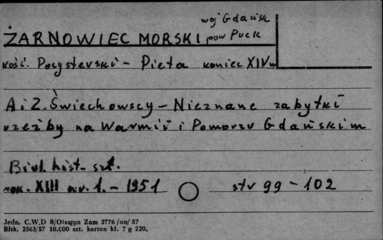 woj Gdańsk
ŻARNOWIEC MORSKI pow Puck
kość. Pocysterski - Pieta koniec XIV w
A i Z. Świechowscy - Nieznane zabytki
rzeźby na Warmii i Pomorzu Gdańskim
Biul. hist. szt.
rok. XIII nr. 1. - 1951 str 99 - 102
Jedn. C.W.D 8/Olsztyn Zam 2776/on/57
Bltk. 2563/57 10.000 szt. karton kl. 7 g 220.